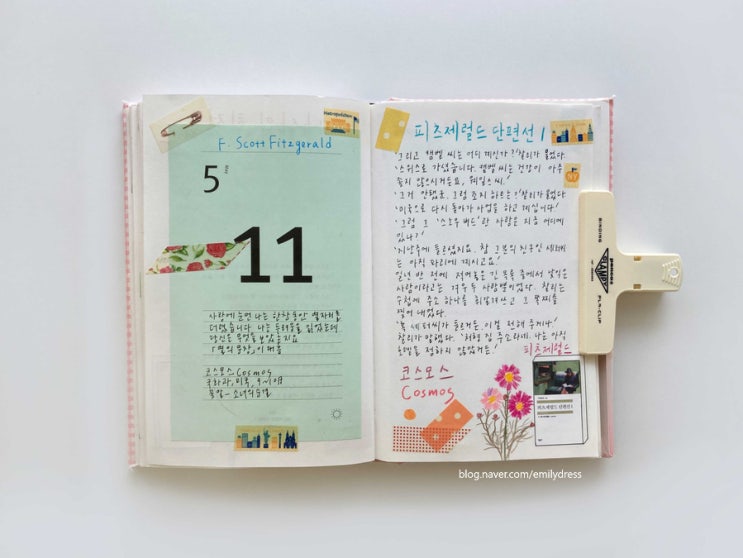 Metropolitan
F. Scott Fitzgerald
5
11
사랑에 눈먼 나는 한참 동안 열자리를
더럽습니다. 나는 두려움을 잃었는데
당신은 무엇을 보았는지요
코스모스 Cosmos
국화과, 미국, 9~10월
꽃말 - 소녀의 순결
피츠제럴드 단편선 1
'그리고 캠벨 씨는 어디 계신가?' 찰리가 물었다.
'스위스로 가셨습니다. 캠벨 씨는 건강이 아주
좋지 않으시거든요, 웨일스 씨.'
'그거 안됐군. 그럼 조지 하트는?' 찰리가 물었다
'미국으로 다시 돌아가 사업을 하고 계십니다.'
'그럼 그 '스노우 버드'란 사람은 지금 어디에
있나?'
'지난주에 들르셨지요. 참 그분의 친구인 셰퍼씨
는 아직 파리에 계시고요.'
일년 반 전에 적어놓은 긴 목록 중에서 낯익은
사람이라고는 겨우 두 사람뿐이었다. 찰리는
수첩에 주소 하나를 휘갈겨 쓰고 그 쪽지를
찢어 내었다.
'혹 셰퍼 씨가 들르거든 이걸 전해 주게나.'
찰리가 말했다. '처형 집 주소라네. 나는 아직
호텔을 정하지 않았거든.'
피츠제럴드
코스모스
Cosmos
피츠제럴드 단편선 1
BINDING
penco
CLAMPY
PLA-CLIP
blog.naver.com/emilydress